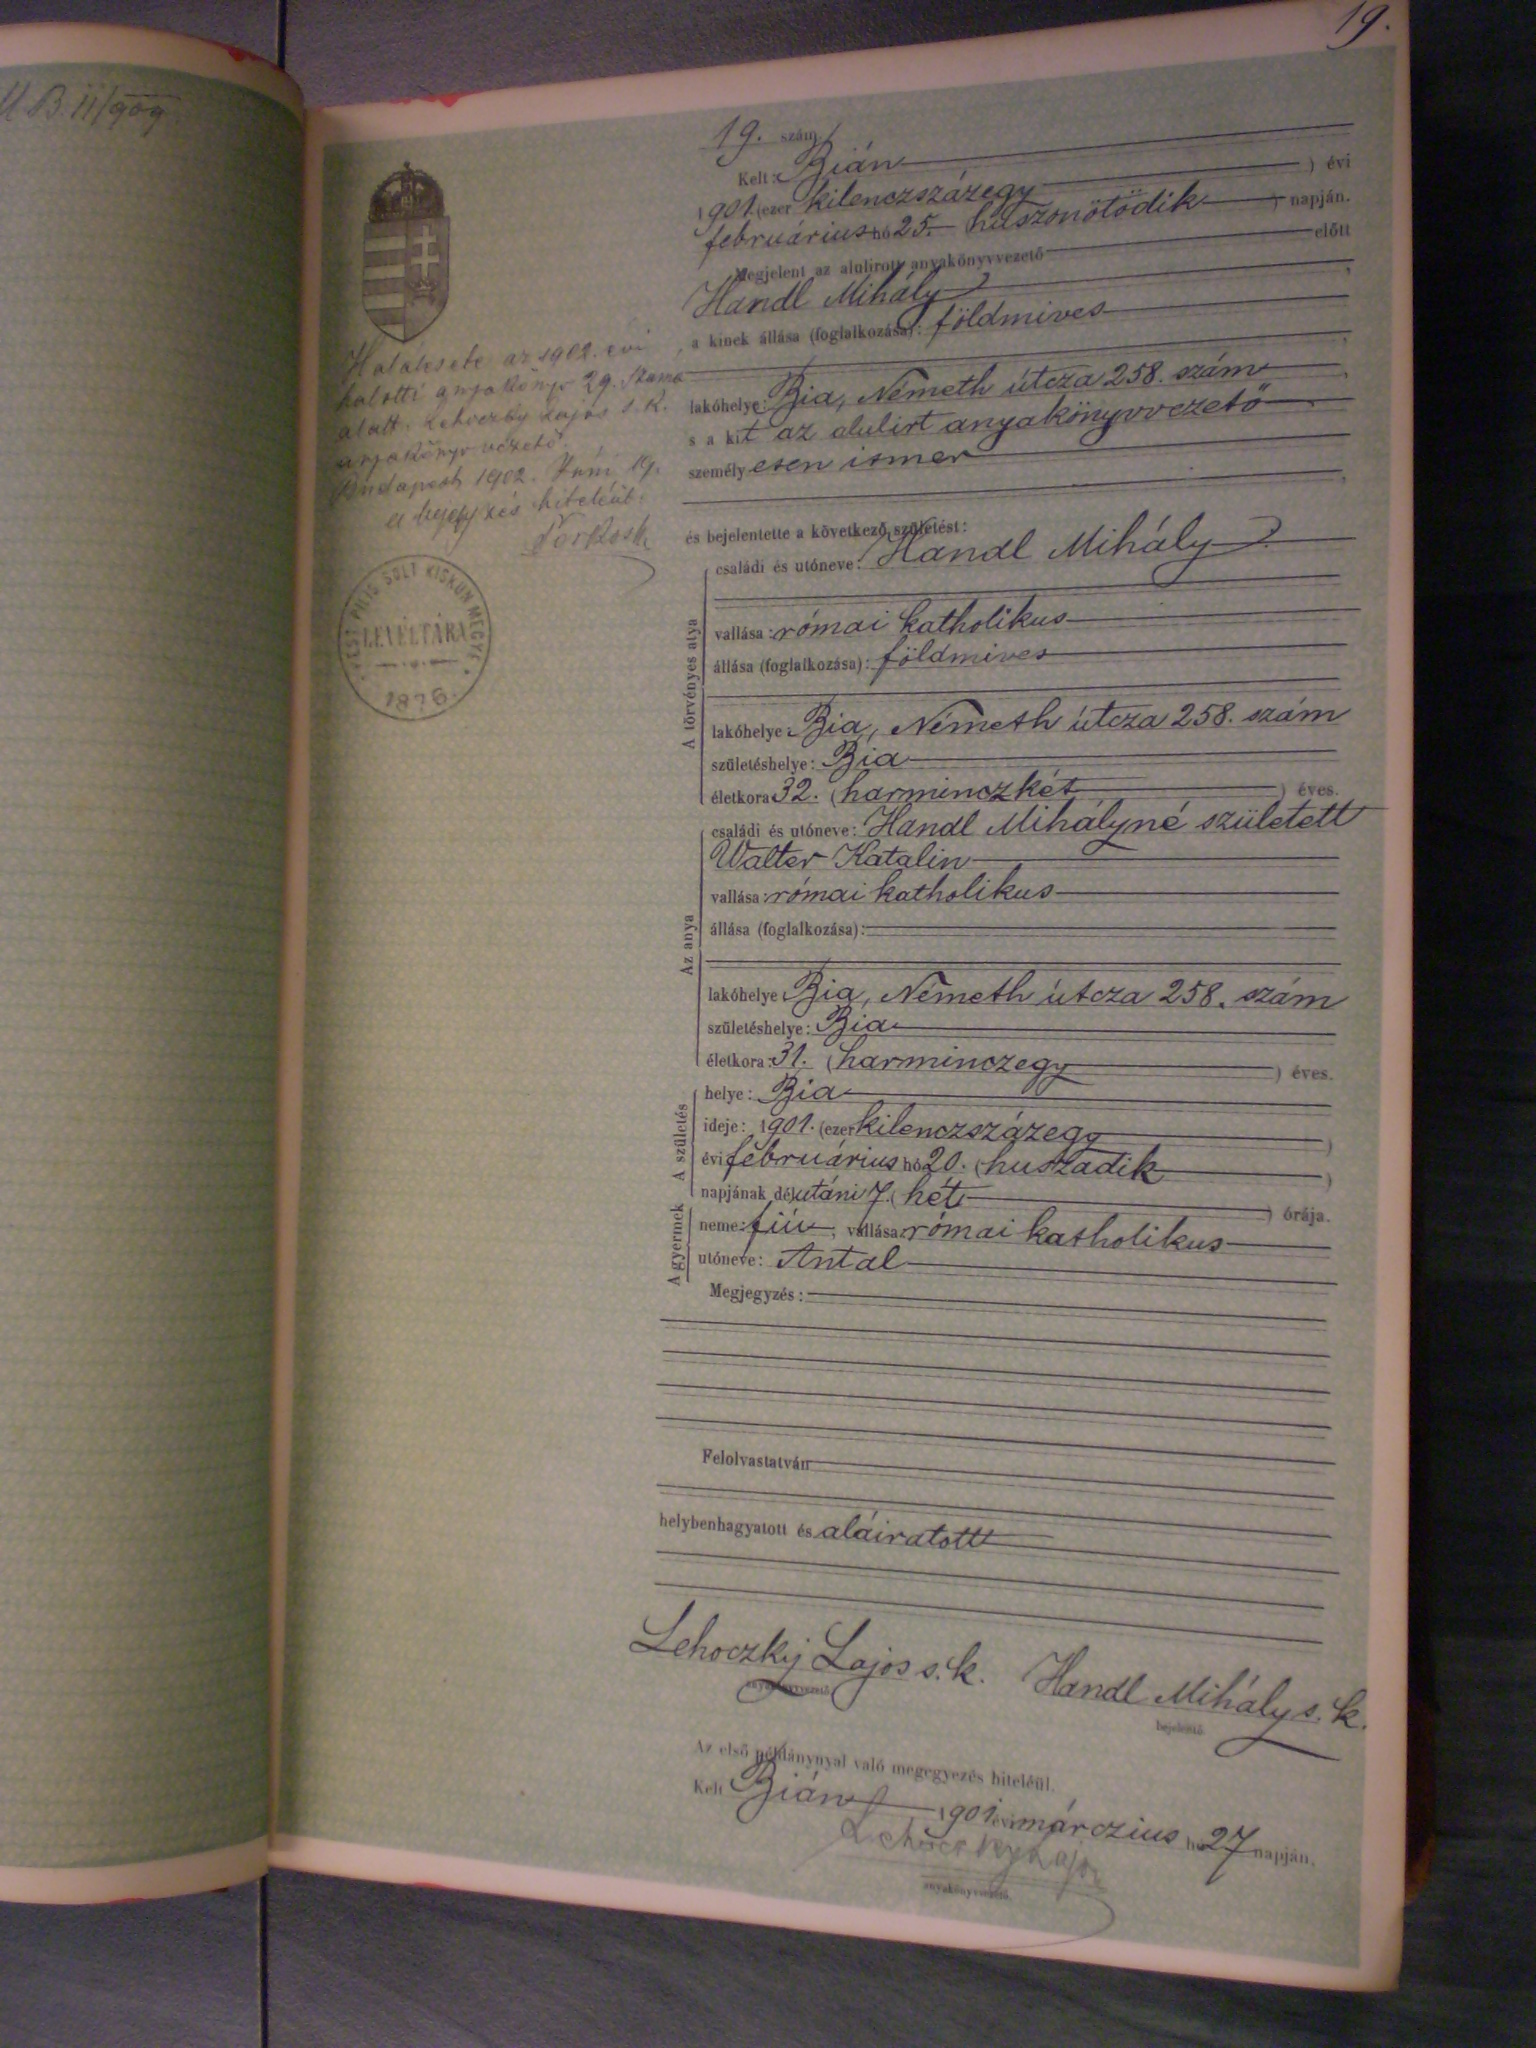 19.
M B. 11/909
19. szám
Kelt: Bián
1901. (ezer kilenczszázegy ) évi
februárius hó 25. huszonötödik ) napján.
Megjelent az alulirott anyakönyvvezető előtt
Handl Mihály,
a kinek állása (foglalkozása): földmives,
lakóhelye: Bia, Németh útcza 258. szám,
s a kit az alulirt anyakönyvvezető
személyesen ismer,
és bejelentette a következő születést:
A törvényes atya
családi és utóneve: Handl Mihály
vallása: római katholikus
állása (foglalkozása): földmives
lakóhelye: Bia, Németh útcza 258. szám
születéshelye: Bia
életkora: 32. (harminczkét ) éves.
Az anya
családi és utóneve: Handl Mihályné született
Walter Katalin
vallása: római katholikus
állása (foglalkozása):
lakóhelye Bia, Németh útcza 258. szám
születéshelye: Bia
életkora: 31. (harminczegy ) éves.
A születés
helye: Bia
ideje: 1901. (ezer kilenczszázegy )
évi februárius hó 20. (huszadik )
napjának délutáni 7. (hét ) órája.
A gyermek
neme: fiú, vallása: római katholikus
utóneve: Antal
Megjegyzés:
Felolvastatván
helybenhagyatott és aláiratott
Lehoczky Lajos s. k. Handl Mihály s. k.
anyakönyvvezető. bejelentő
Az első példánynyal való megegyezés hiteléül.
Kelt Bián 1901 évi márczius hó 27 napján.
Lehoczky Lajos
anyakönyvvezető.
Halálesete az 1902. évi
halotti anyakönyv 29. száma
alatt. Lehoczky Lajos s. k.
anyakönyvvezető.
Budapest 1902. Juni 19.
A bejegyzés hiteléül.
PEST PILIS SOLT KISKUN MEGYE
LEVÉLTÁRA
1876.